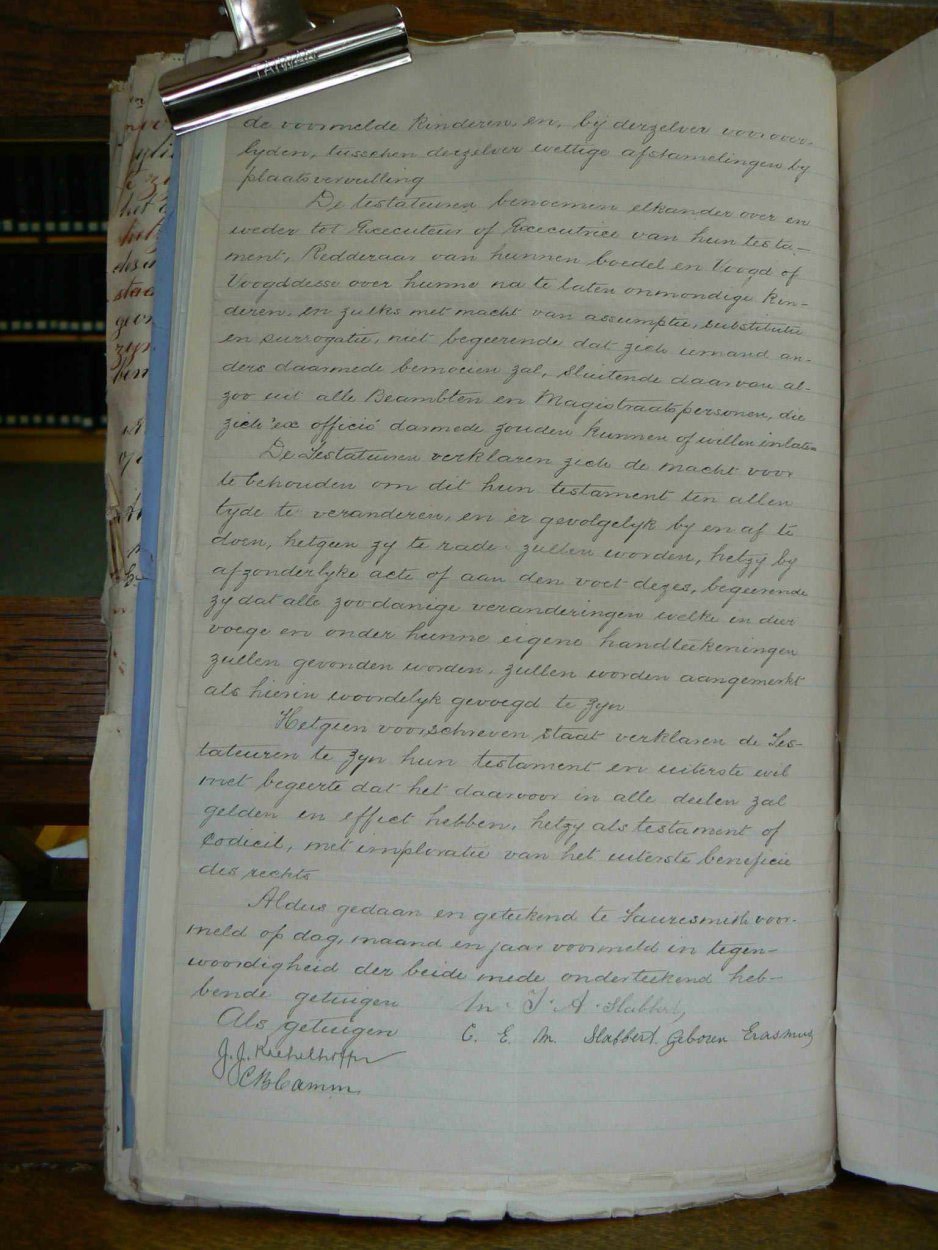 de voormelde kinderen en, bij derzelver vooroverlyden, tusschen derzelver wettige afstamelingen by
plaatsvervulling
De testateuren benoemen elkander over en
weder tot Executeur of Executrice van hun testa-
ment, Redderaar van hunnen boedel en Voogd of
Voogddesse over hunne na te laten onmondige kin-
deren, en zulks met macht van assumptie, substitutie
en surrogatie, niet begeerende dat zich iemand an-
ders daarmede bemoeien zal, sluitende daarvan al-
zoo uit alle Beambten en Magistraatspersonen, die
zich "ex officio" darmede zouden kunnen of willen inlaten
De Testateuren verklaren zich de macht voor
te behouden om dit hun testament ten allen
tyde te veranderen, en er gevolgelyk by en af te
doen, hetgeen zy te rade zullen worden, hetzy by
afzonderlyke acte of aan den voet dezes, begeerende
zy dat alle zoodanige veranderingen welke in dier
voege en onder hunne eigene handteekeningen
zullen gevonden worden, zullen worden aangemerkt
als hierin woordelyk gevoegd te zyn
Hetgeen voorschreven staat verklaren de Tes-
tateuren te zyn hun testament en uiterste wil
met begeerte dat het daarvoor in alle deelen zal
gelden en effect hebben, hetzy als testament of
Codicil, met imploratie van het uiterste beneficie
des rechts
Aldus gedaan en geteekend te Fauresmith voor-
meld op dag, maand en jaar voormeld in tegen-
woordigheid der beide mede onderteekend heb-
bende getuigen
W. J. A. Slabbert,
Als getuigen
C. E. M. Slabbert geboren Erasmus
J. J.